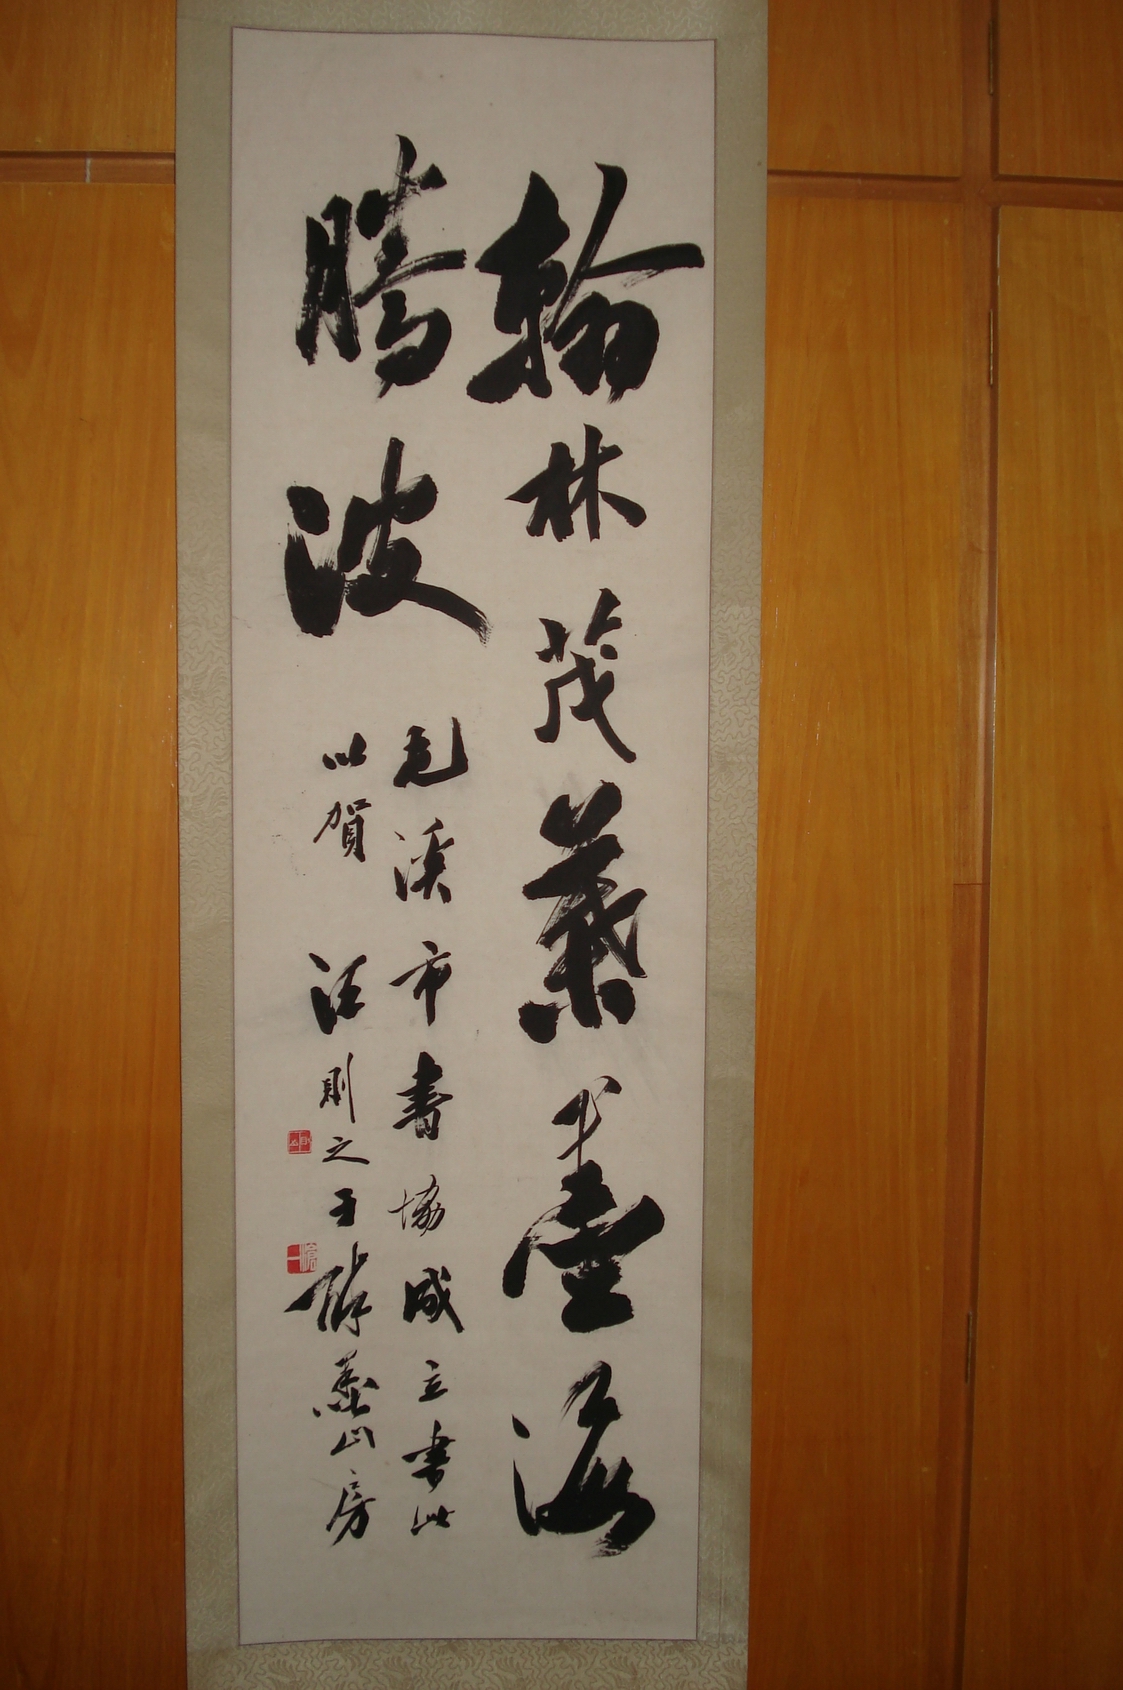 翰林茂葉海
騰波
溪市書協成立書此
以賀 汪則之于醉墨山房